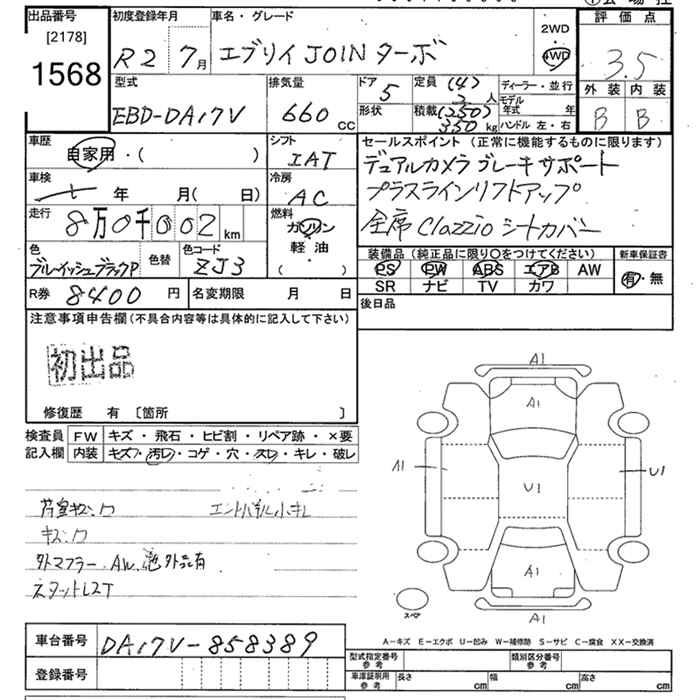 出品番号
[2178]
1568
初度登録年月
R2 7月
車名・グレード
エブリイ JOIN ターボ
2WD
4WD
評価点
3.5
外装 内装
B B
型式
EBD-DA17V
排気量
660 CC
ドア
5
形状
定員 (4)
2 人
積載 (250)
350 kg
ディーラー・並行
モデル年式 年
ハンドル 左・右
車歴
自家用・( )
シフト
IAT
セールスポイント (正常に機能するものに限ります)
デュアルカメラ ブレーキサポート
プラスラインリフトアップ
全席 Clazzio シートカバー
車検
年 月( 日)
冷房
AC
走行
8万0千002km
燃料
ガソリン
軽油
( )
色
ブルーイッシュブラックP
色替
色コード
ZJ3
装備品 (純正品に限り○をつけてください)
新車保証書
PS PW ABS エアB AW
SR ナビ TV カワ
有・無
R券 8400 円
名変期限 月 日
後日品
注意事項申告欄 (不具合内容等は具体的に記入して下さい)
初出品
修復歴 有 〔箇所 〕
検査員記入欄
FW キズ・飛石・ヒビ割・リペア跡・×要
内装 キズ・汚レ・コゲ・穴・スレ・キレ・破レ
キズ
外マフラー.AW.他外品有
A1
A1
A1
U1
U1
A1
A1
スペア
A-キズ E-エクボ U-凹み W-補修跡 S-サビ C-腐食 XX-交換済
車台番号 DA17V-858389
登録番号
型式指定番号 参考
類別区分番号 参考
車庫証明用 参考
長さ cm 幅 cm 高さ cm